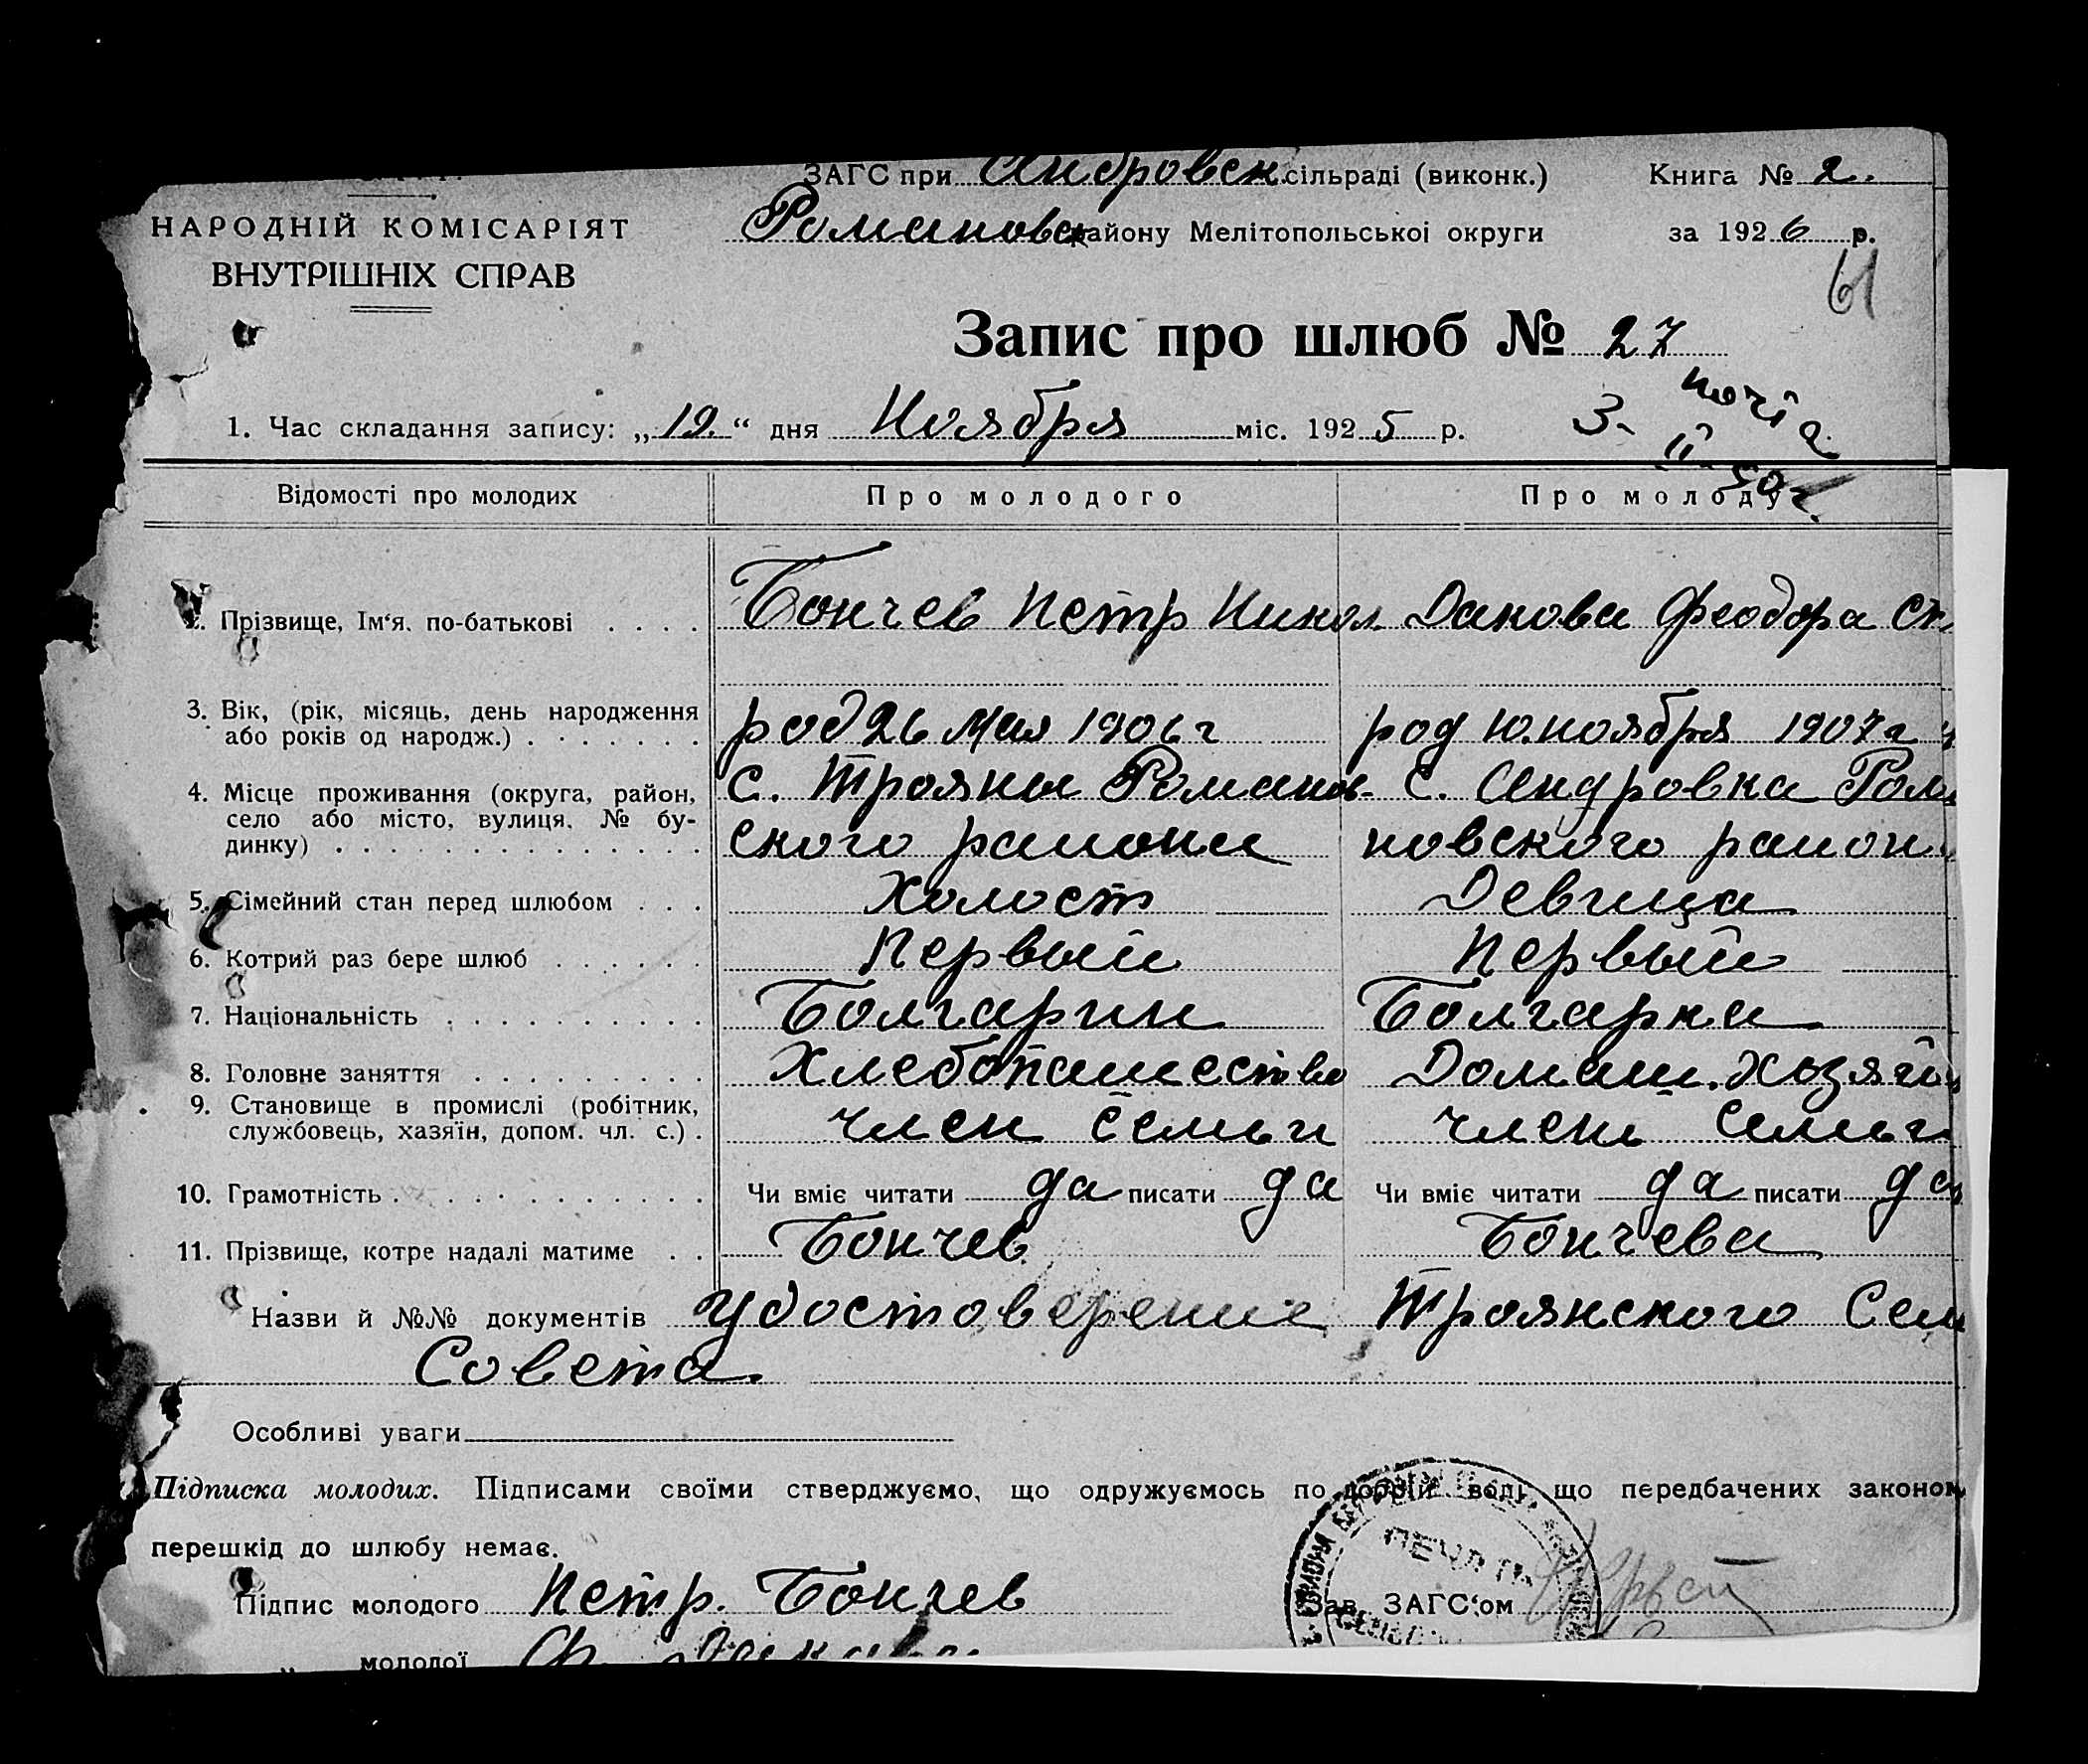 ЗАГС при Андровск. сільраді (виконк.) Книга № 2.
НАРОДНІЙ КОМІСАРІЯТ Романовск району Мелітопольської округи за 1926 р.
ВНУТРІШНІХ СПРАВ
61
Запис про шлюб № 27
1. Час складання запису: „19." дня Ноября міс. 1925 р. 3.
Відомості про молодих Про молодого Про молоду
2. Прізвище, Ім'я, по-батькові Бончев Петр Никол. Данова Феодора Ст.
3. Вік, (рік, місяць, день народження
або років од народж.) род 26 Мая 1906 г род 10 ноября 1907 г
4. Місце проживання (округа, район,
село або місто, вулиця, № бу-
динку)
С. Трояны Романов-
ского района
С. Андровка Рома
новского район
5. Сімейний стан перед шлюбом Холост Девица
6. Котрий раз бере шлюб Первый Первый
7. Національність Болгарин Болгарка
8. Головне заняття Хлебопашество Домаш. Хозяй
9. Становище в промислі (робітник,
службовець, хазяїн, допом. чл. с.) член семьи член семьи
10. Грамотність Чи вміє читати да писати да Чи вміє читати да писати да
11. Прізвище, котре надалі матиме Бончев Бончева
Назви й №№ документів удостоверение Троянского Сель
Совета.
Особливі уваги
Підписка молодих. Підписами своїми стверджуємо, що одружуємось по добрій волі, що передбачених законом
перешкід до шлюбу немає.
ПЕЧАТЬ
Підпис молодого Петр. Бончев Зав. ЗАГС'ом
„ молодої Ф.